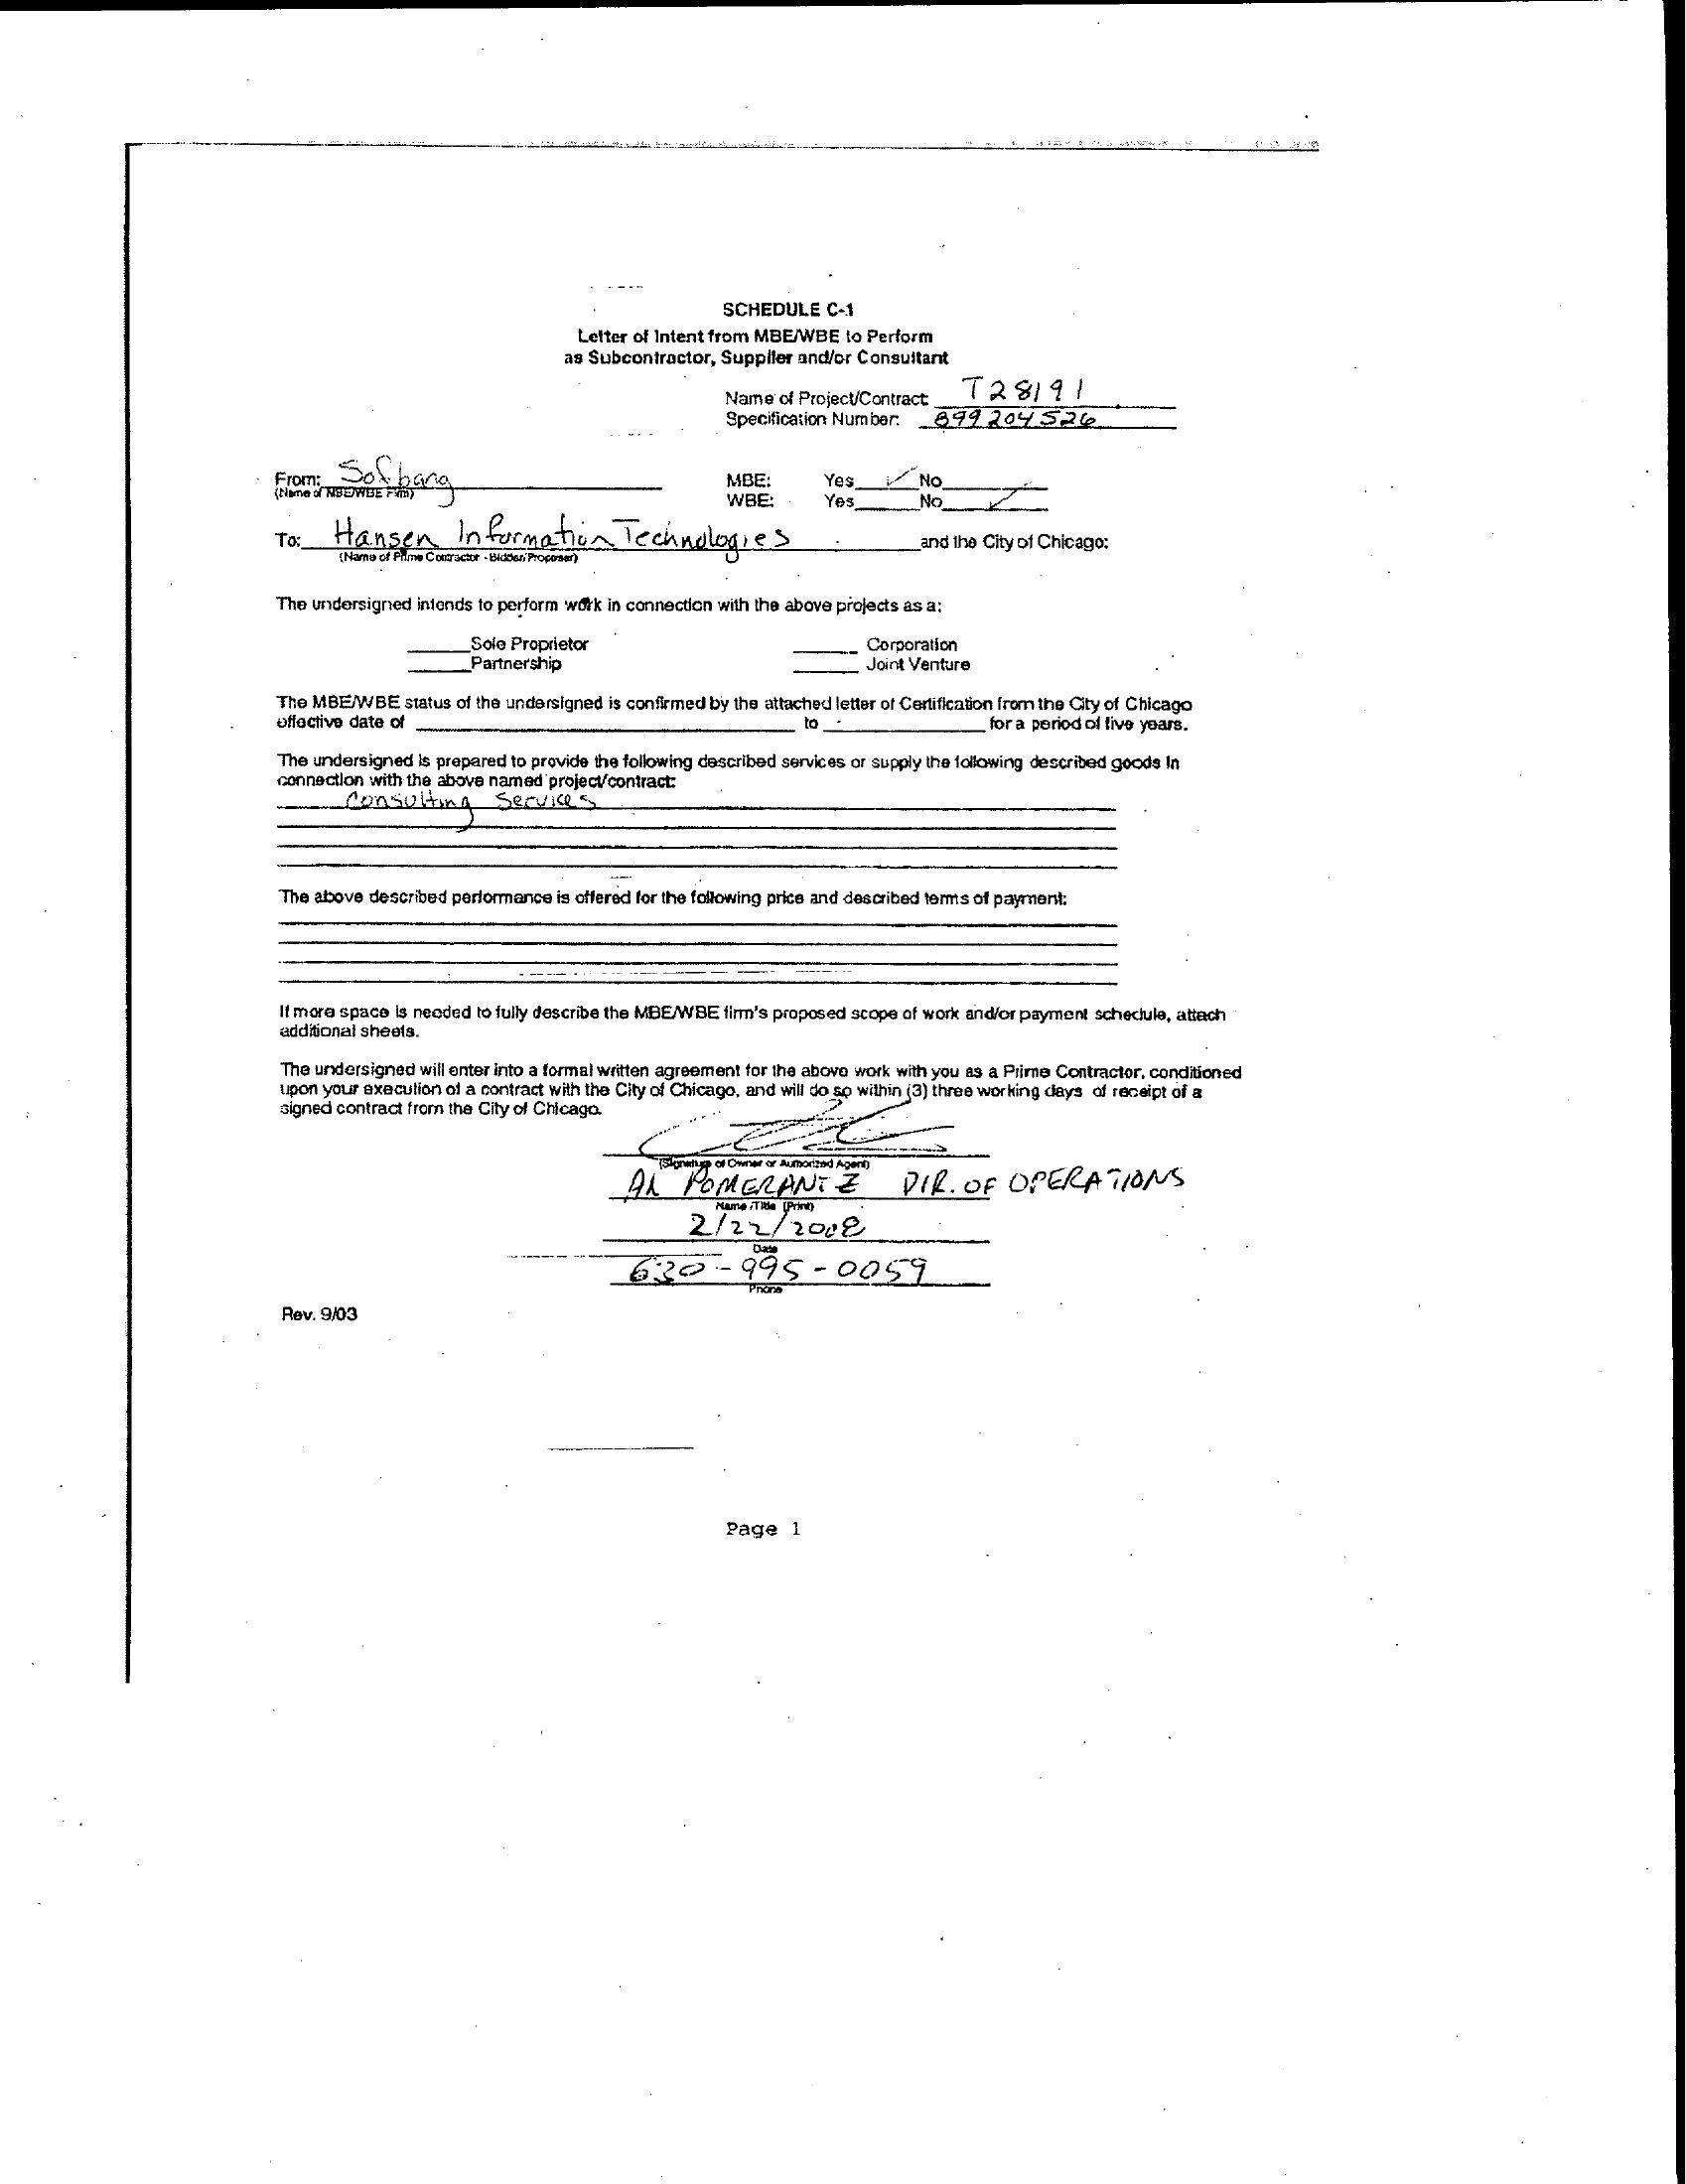 SCHEDULE C-1
Letter of Intent from MBE/WBE to Perform
as Subcontractor, Supplier and/or Consultant
Name of Project/Contract: T28191
Specification Number: 899204526
From: Sofbang MBE: Yes ✓ No
(Name of MBE/WBE Firm) WBE: Yes No ✓
To: Hansen Information Technologies and the City of Chicago:
(Name of Prime Contractor - Bidder/Proposer)
The undersigned intends to perform work in connection with the above projects as a:
Sole Proprietor Corporation
Partnership Joint Venture
The MBE/WBE status of the undersigned is confirmed by the attached letter of Certification from the City of Chicago
effective date of to for a period of five years.
The undersigned is prepared to provide the following described services or supply the following described goods in
connection with the above named project/contract:
Consulting Services
The above described performance is offered for the following price and described terms of payment:
If more space is needed to fully describe the MBE/WBE firm's proposed scope of work and/or payment schedule, attach
additional sheets.
The undersigned will enter into a formal written agreement for the above work with you as a Prime Contractor, conditioned
upon your execution of a contract with the City of Chicago, and will do so within (3) three working days of receipt of a
signed contract from the City of Chicago.
(Signature of Owner or Authorized Agent)
AL POMERANTZ DIR. OF OPERATIONS
Name/Title (Print)
2/22/2008
Date
630-995-0059
Phone
Rev. 9/03
Page 1